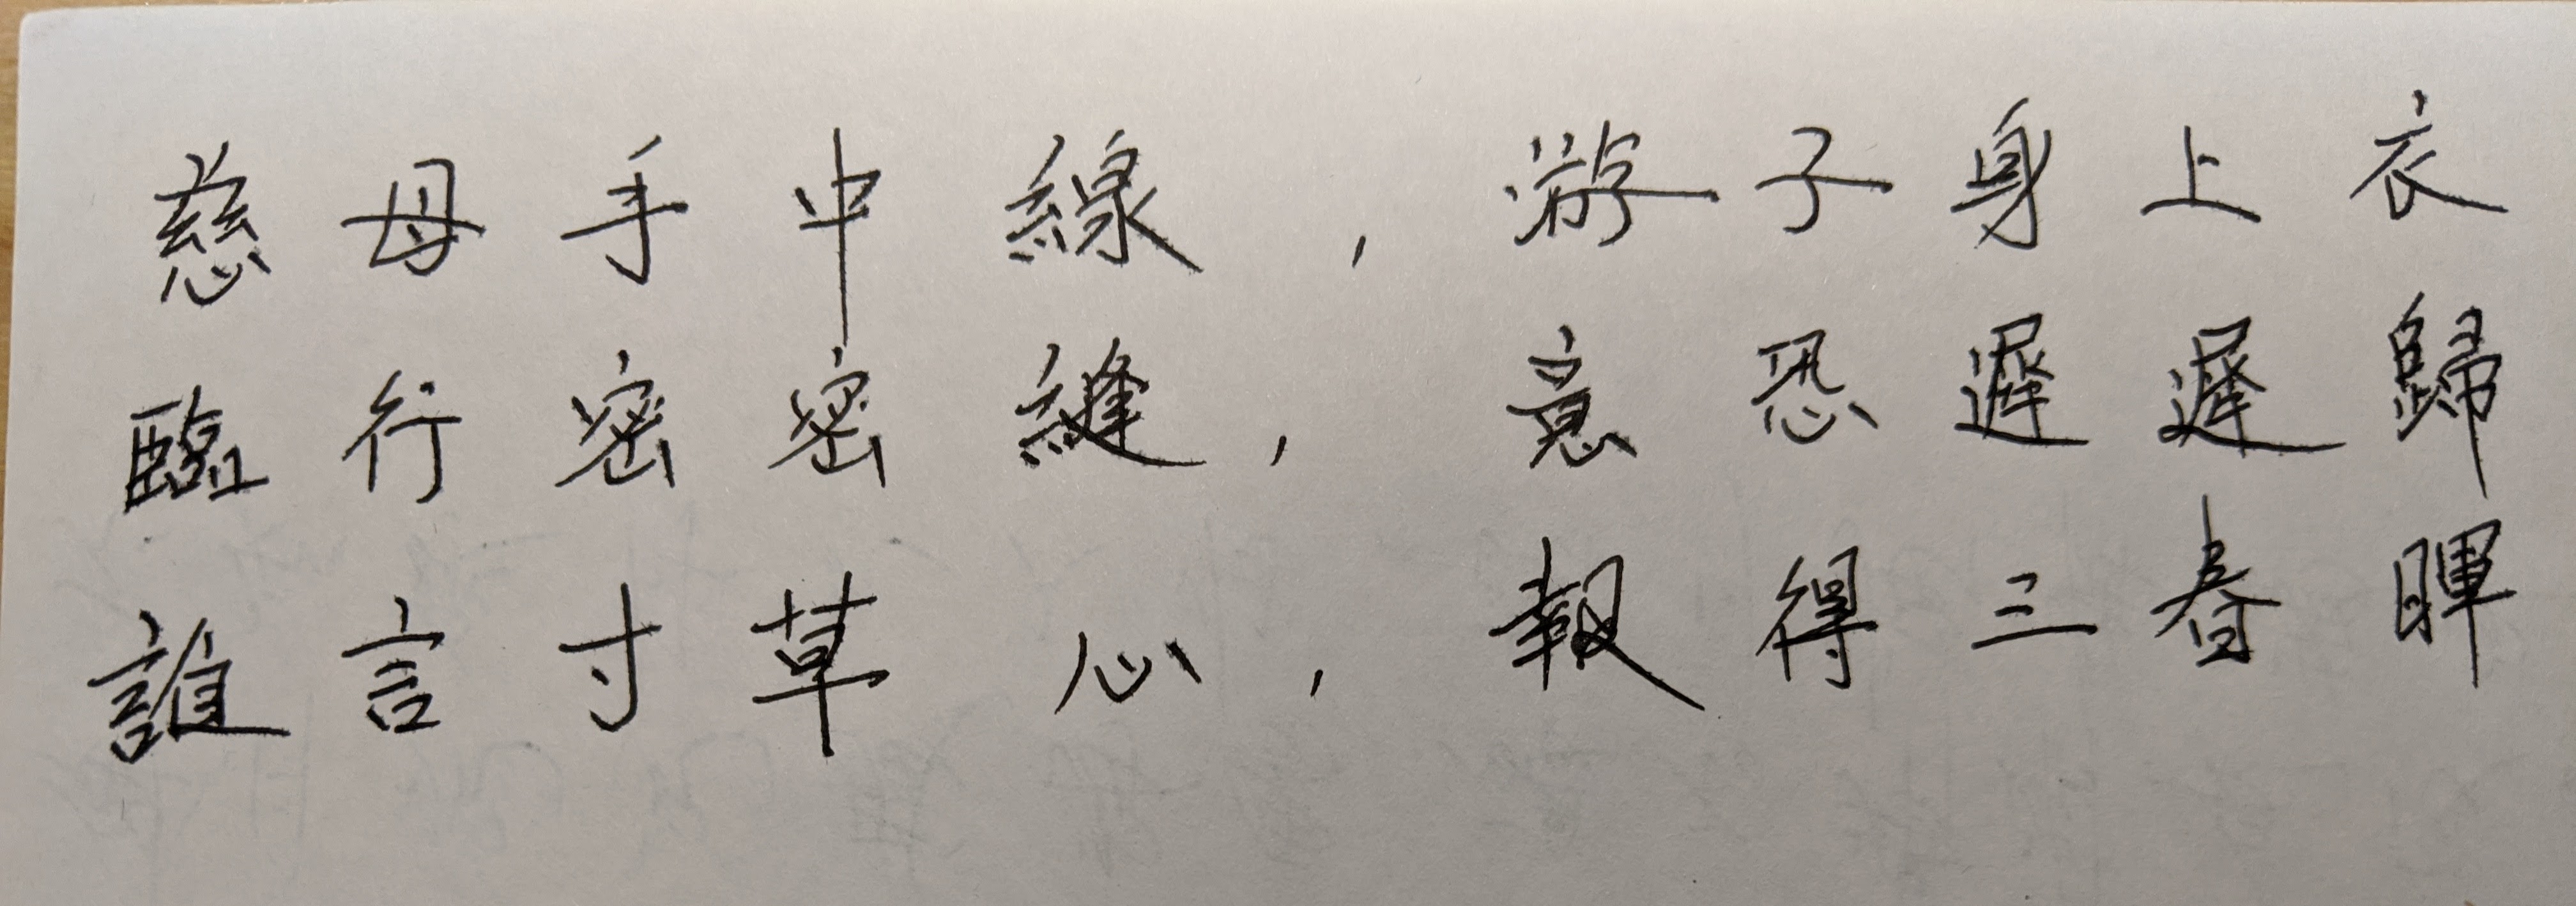 慈母手中線，游子身上衣
臨行密密縫，意恐遲遲歸
誰言寸草心，報得三春暉